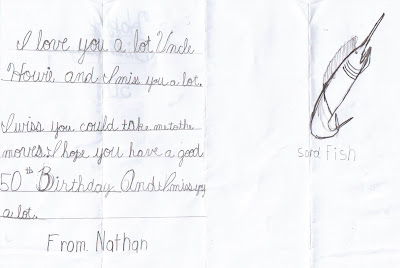 I love you a lot Uncle
Howie, and I miss you a lot.
I wiss you could take me to the
moves. I hope you have a good
50th Birthday And I miss you
a lot.
From Nathan
sord Fish